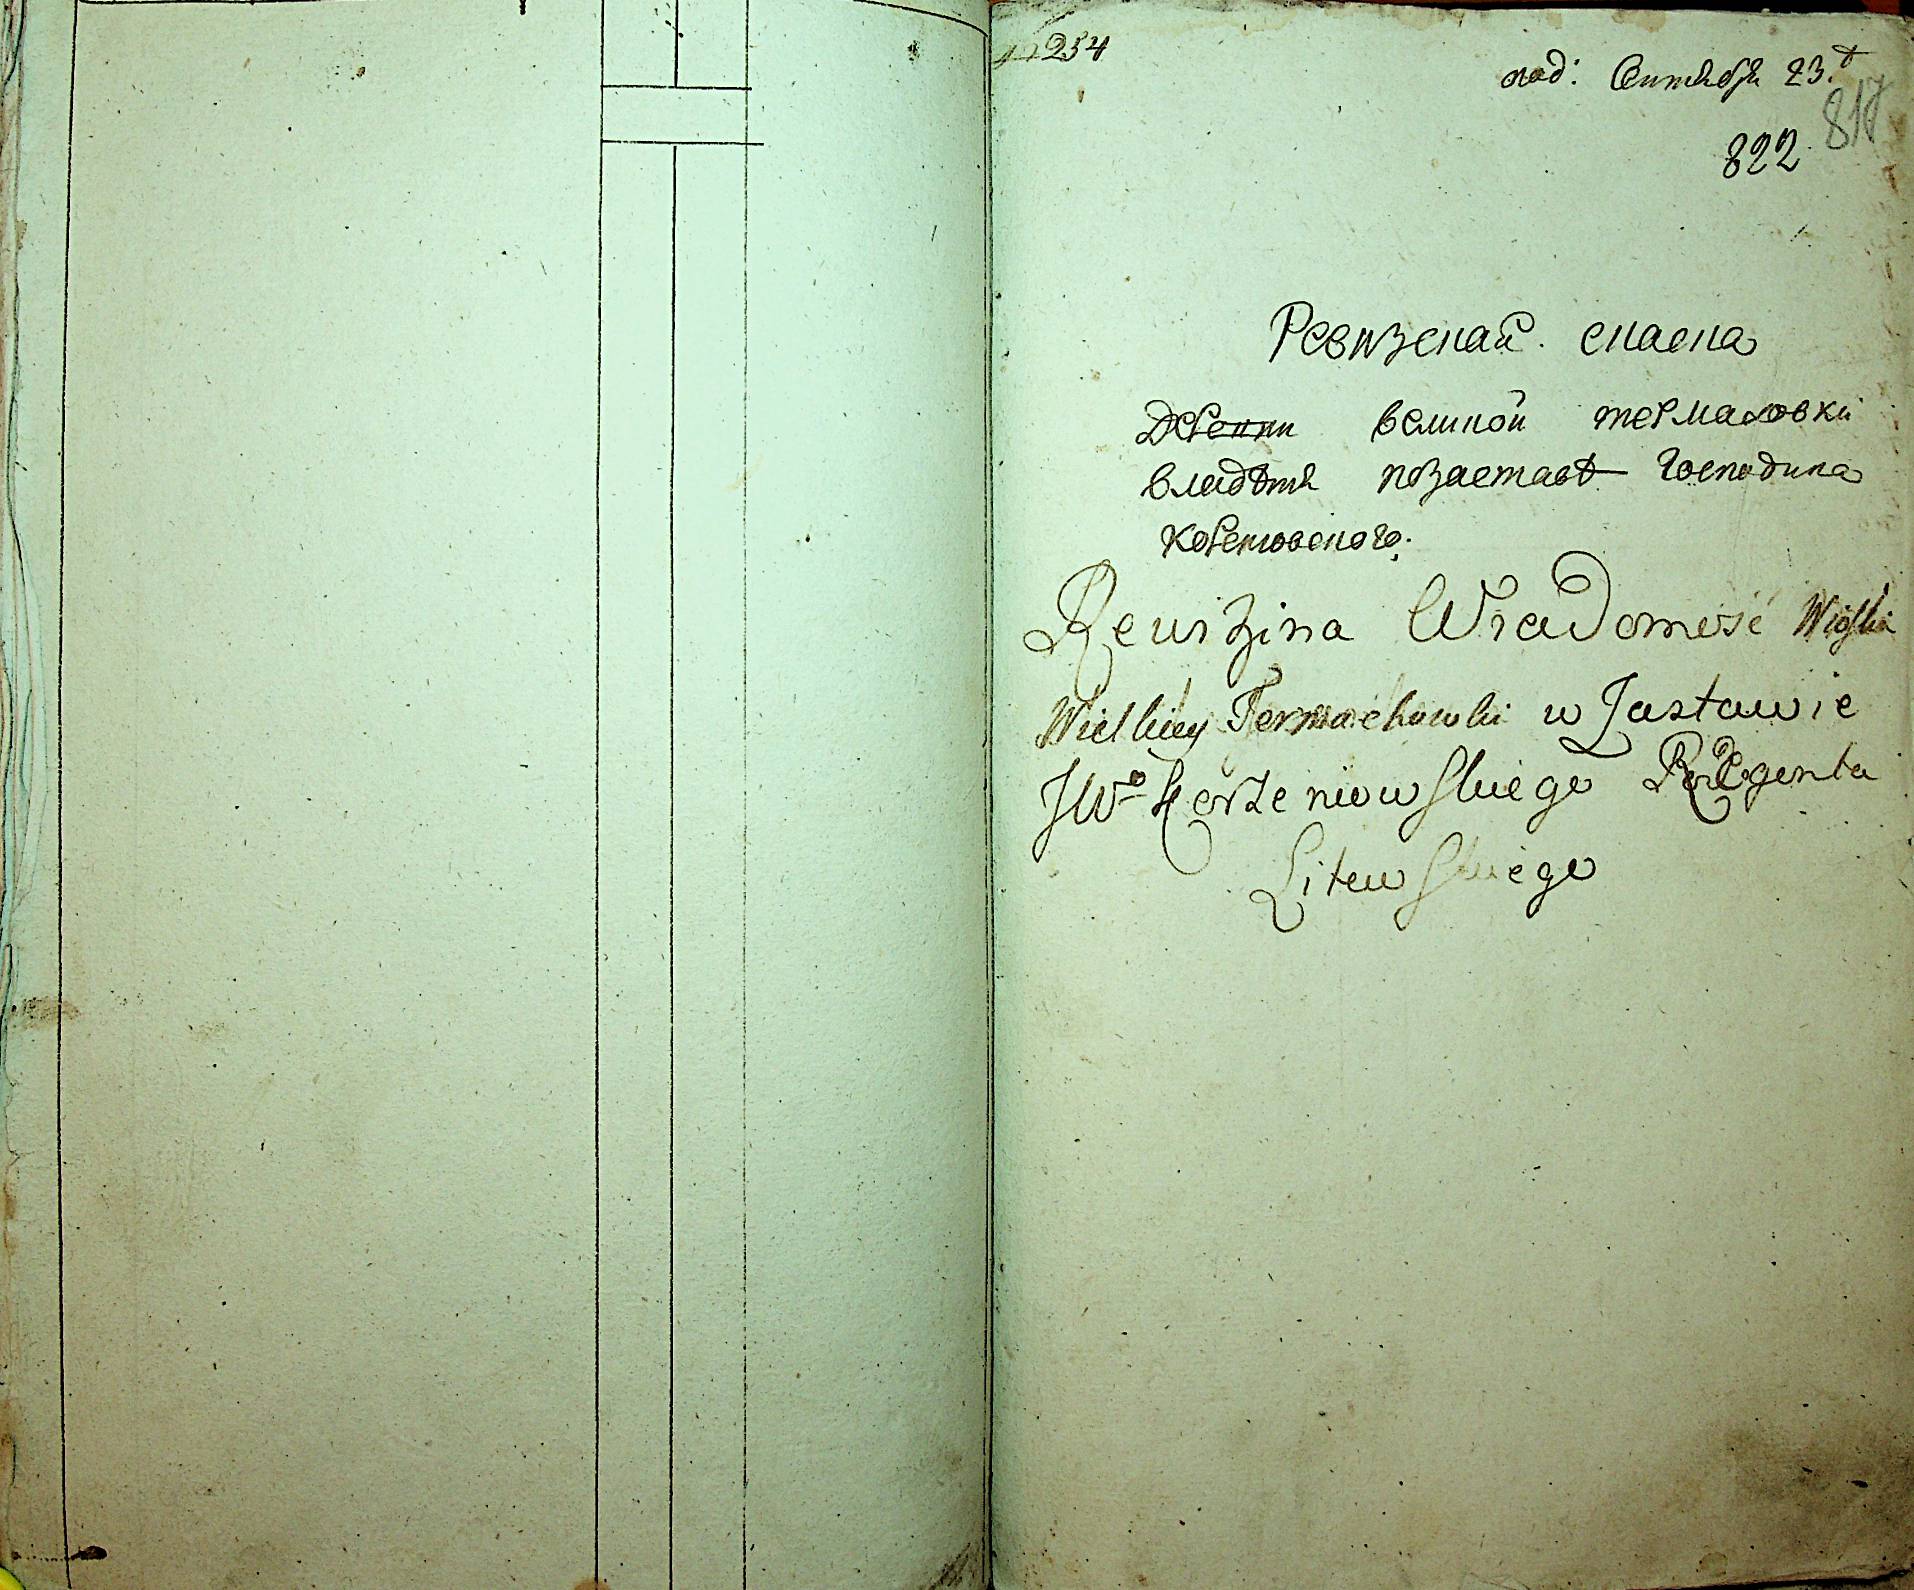 254
под: Сентября 23.д
817
822
Ревизская сказка
Деревни великой термаховки
владѣния позаставѣ господина
корженовского.
Rewizina Wiadomość Wioski
Wielkiey Termachowki w Zastawie
JWo Korzeniowskiego Regenta
Litewskiego